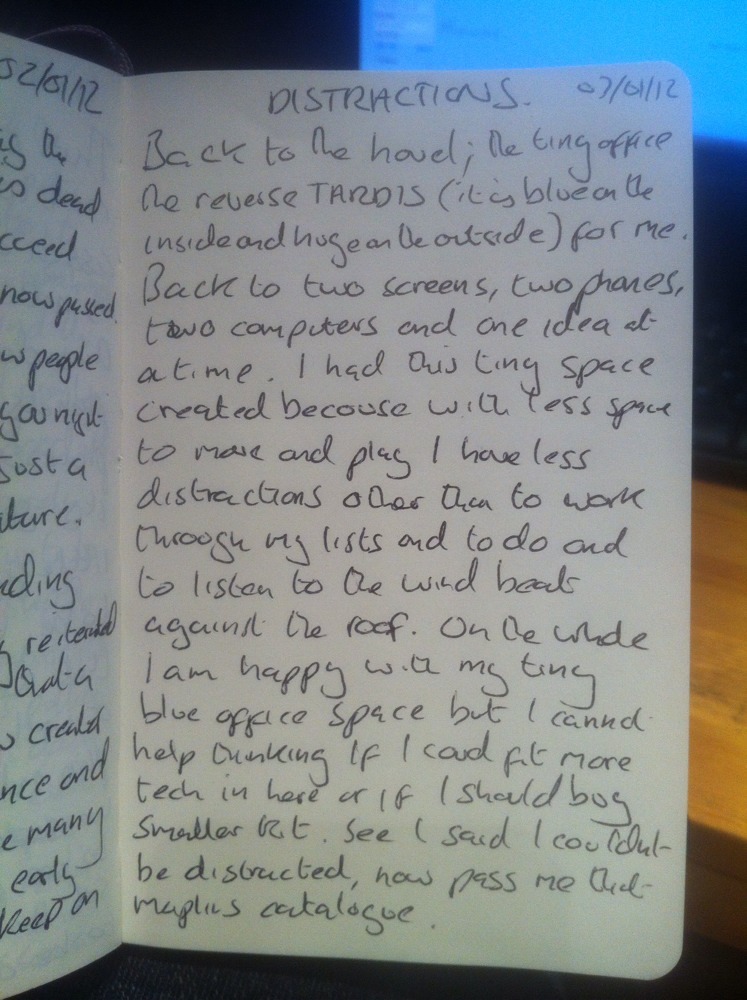 02/01/12
the
dead
cceed
now passed.
people
Just a
ature.
reiterated
that a
created
nce and
many
early
keep on
DISTRACTIONS. 03/01/12
Back to the hovel; the tiny office
the reverse TARDIS (it is blue on the
inside and huge on the outside) for me.
Back to two screens, two phones,
two computers and one idea at
a time. I had this tiny space
created because with less space
to move and play I have less
distractions other than to work
through my lists and to do and
to listen to the wind beats
against the roof. On the whole
I am happy with my tiny
blue office space but I cannot
help thinking If I coud fit more
tech in here or if I should buy
smaller kit. See I said I couldn't
be distracted, now pass me that
Maplins catalogue.